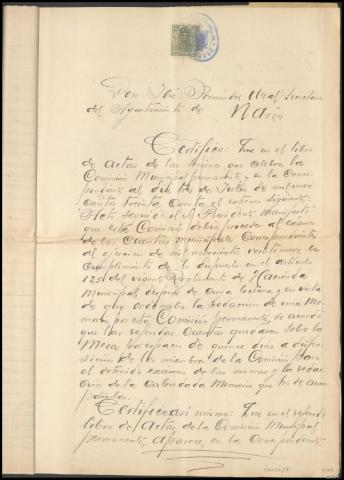 Don José Fernández Secretario
del Ayuntamiento de Narón
Certifico: Que en el libro
de actas de las sesiones que celebra la
Comisión Municipal permanente y en la corres-
pondiente al dia tres de Julio de mil nove-
cientos treinta consta el extremo siguiente:
"Acto seguido el Sr. Presidente manifestó
que esta Comisión debia proceder al examen
de las Cuentas municipales correspondientes
al ejercicio de mil novecientos veintinueve, en
cumplimiento de lo dispuesto en el articulo
125 del vigente Reglamento de Hacienda
Municipal, despues de cuya lectura y en vista
de que ordenaba la redacción de una Me-
moria por esta Comisión permanente, se acordó
que las referidas cuentas quedasen sobre la
Mesa, por espacio de quince dias a dispo-
sición de los miembros de la Comisión para
el detenido examen de las mismas y la redac-
ción de la Memoria que ha de acom-
pañarlas.
Certifico asi mismo: Que en el referido
libro de Actas de la Comisión Municipal
permanente, aparece, en la correspondiente